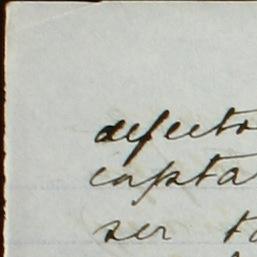 defecto
capta
ser ta